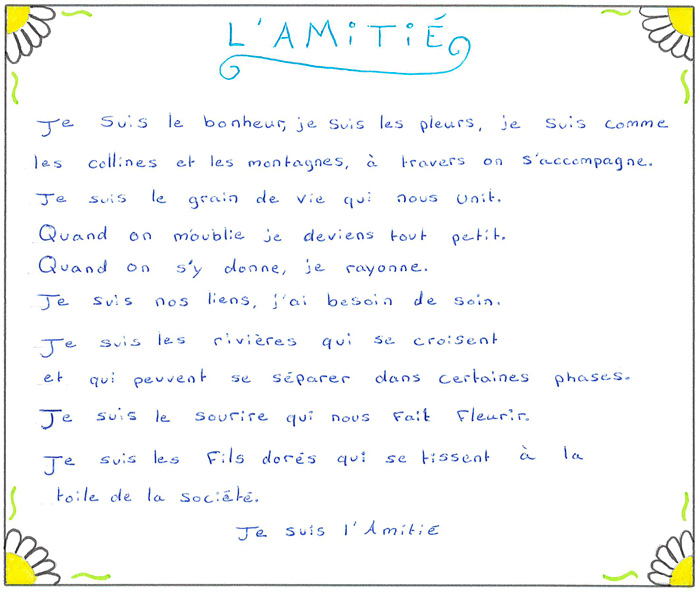 L'AMiTiÉ
Je suis le bonheur, je suis les pleurs, je suis comme
les collines et les montagnes, à travers on s'accompagne.
Je suis le grain de vie qui nous unit.
Quand on m'oublie je deviens tout petit.
Quand on s'y donne, je rayonne.
Je suis nos liens, j'ai besoin de soin.
Je suis les rivières qui se croisent
et qui peuvent se séparer dans certaines phases.
Je suis le sourire qui nous fait fleurir.
Je suis les fils dorés qui se tissent à la
toile de la société.
Je suis l'Amitié